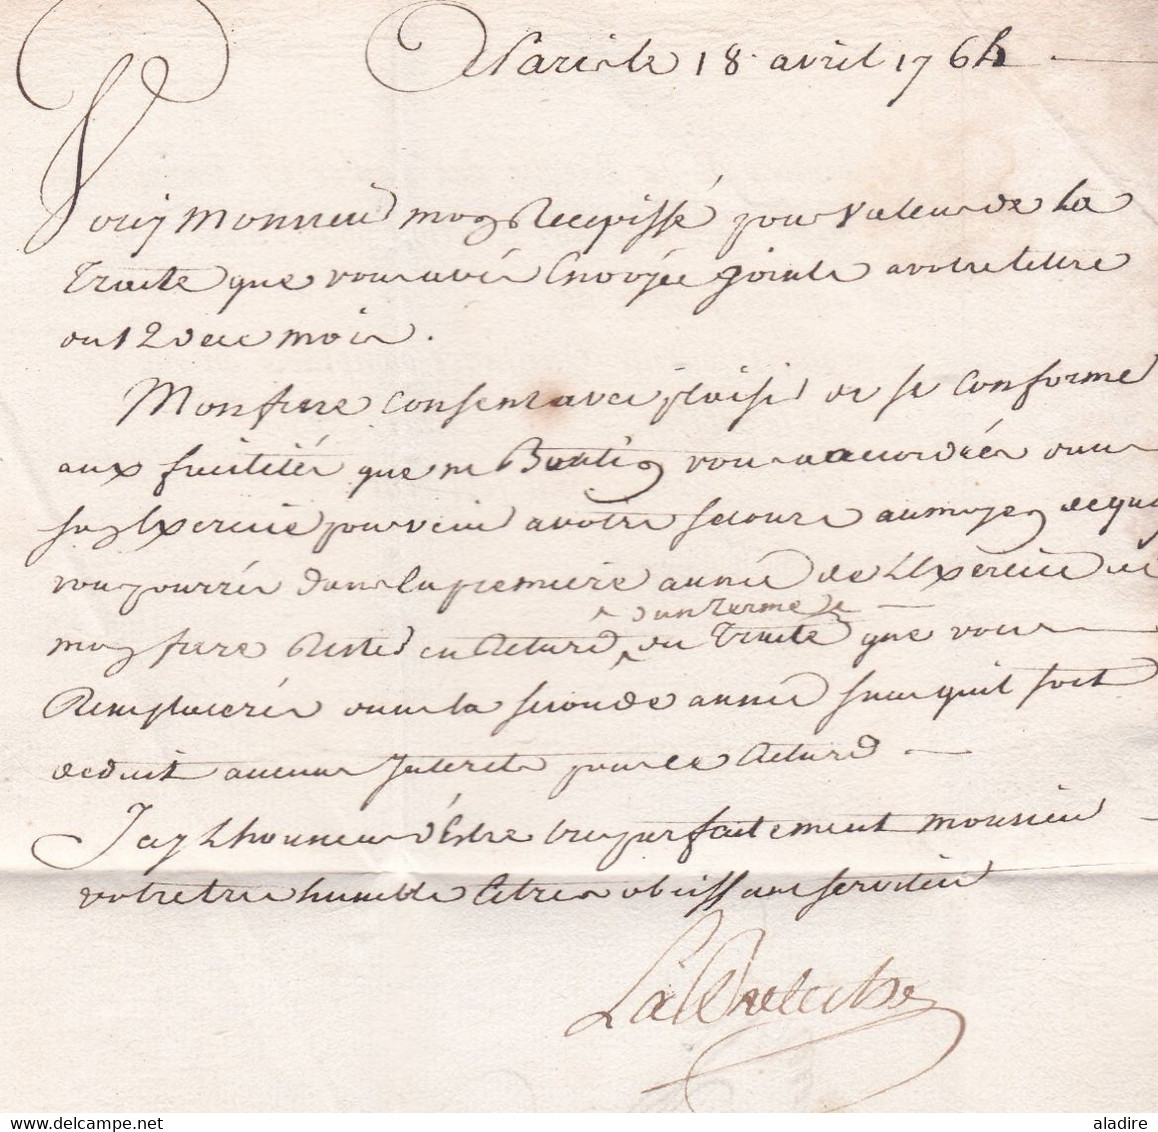 A Paris le 18 avril 1764
Voicy Monsieur mon Recepissé pour valeur de La
Traite que vous avés Envoyée jointe a votre lettre
du 12 de ce mois.
Mon frere consent avec plaisir de se conformer
aux facilités que M vous a accordées dans
son Exercice pour venir a votre secours au moyen de quoy
vous pourrés dans la premiere année de L'Exercice de
mon frere Rester en Retard d'un Terme de
du Traité que vous
Remplacerés dans la seconde année sans qu'il soit
deduit aucuns Interets pour ce Retard
J'ay L'honneur d'Estre tres parfaitement monsieur
votre tres humble et tres obeissant serviteur
aladire
delcampe.net